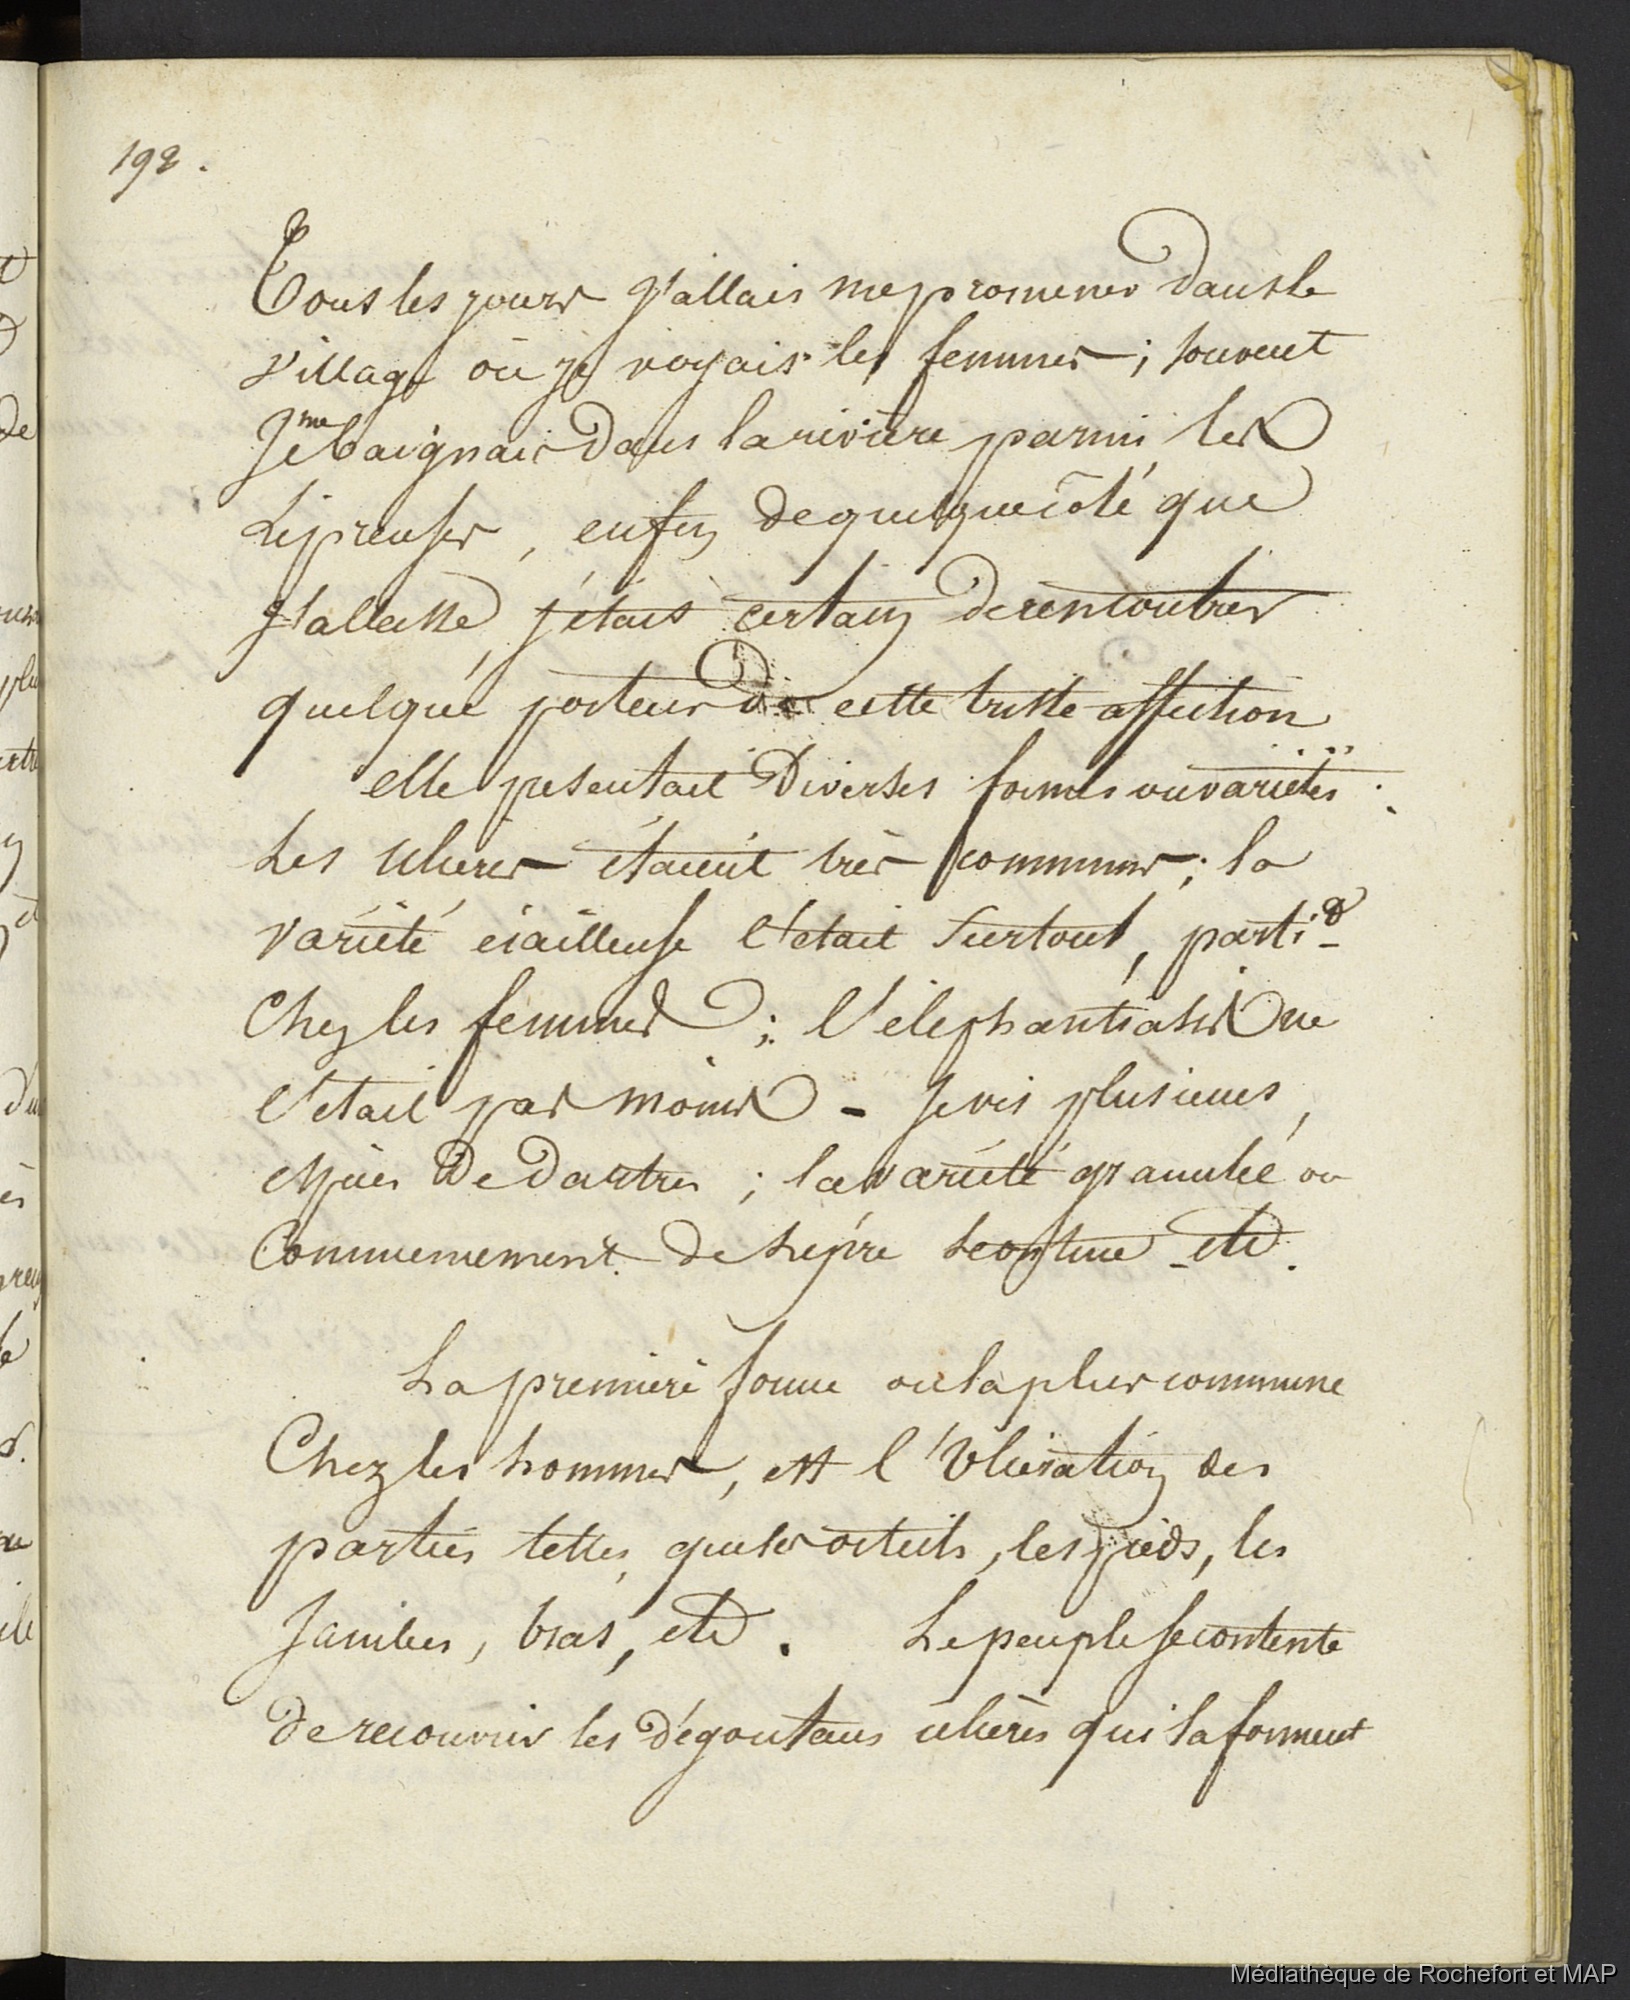 192.
Tous les jours j'allais me promener dans le
village où je voyais les femmes ; souvent
Je me baignais dans la rivière parmi les
Lépreuses, enfin de quelque côté que
J'allasse, j'étais certain de rencontrer
quelque porteur de cette triste affection
elle presentait Diverses formes ou variétés.
Les Ulceres étaient très communs ; la
variété écailleuse l'etait Surtout, parti.
Chez les femmes ; l'élephantiasis ne
l'etait pas moins - Je vis plusieurs
espèces De Dartres ; la variété granulée ou
Communement de Lépre etc.
La premiere forme ou la plus commune
Chez les hommes, est l'Ulcération des
parties telles que les orteils, les pieds, les
Jambes, bras, etc. Le peuple se contente
De recouvrir les dégoutans ulcères qui la forment
Médiathèque de Rochefort et MAP